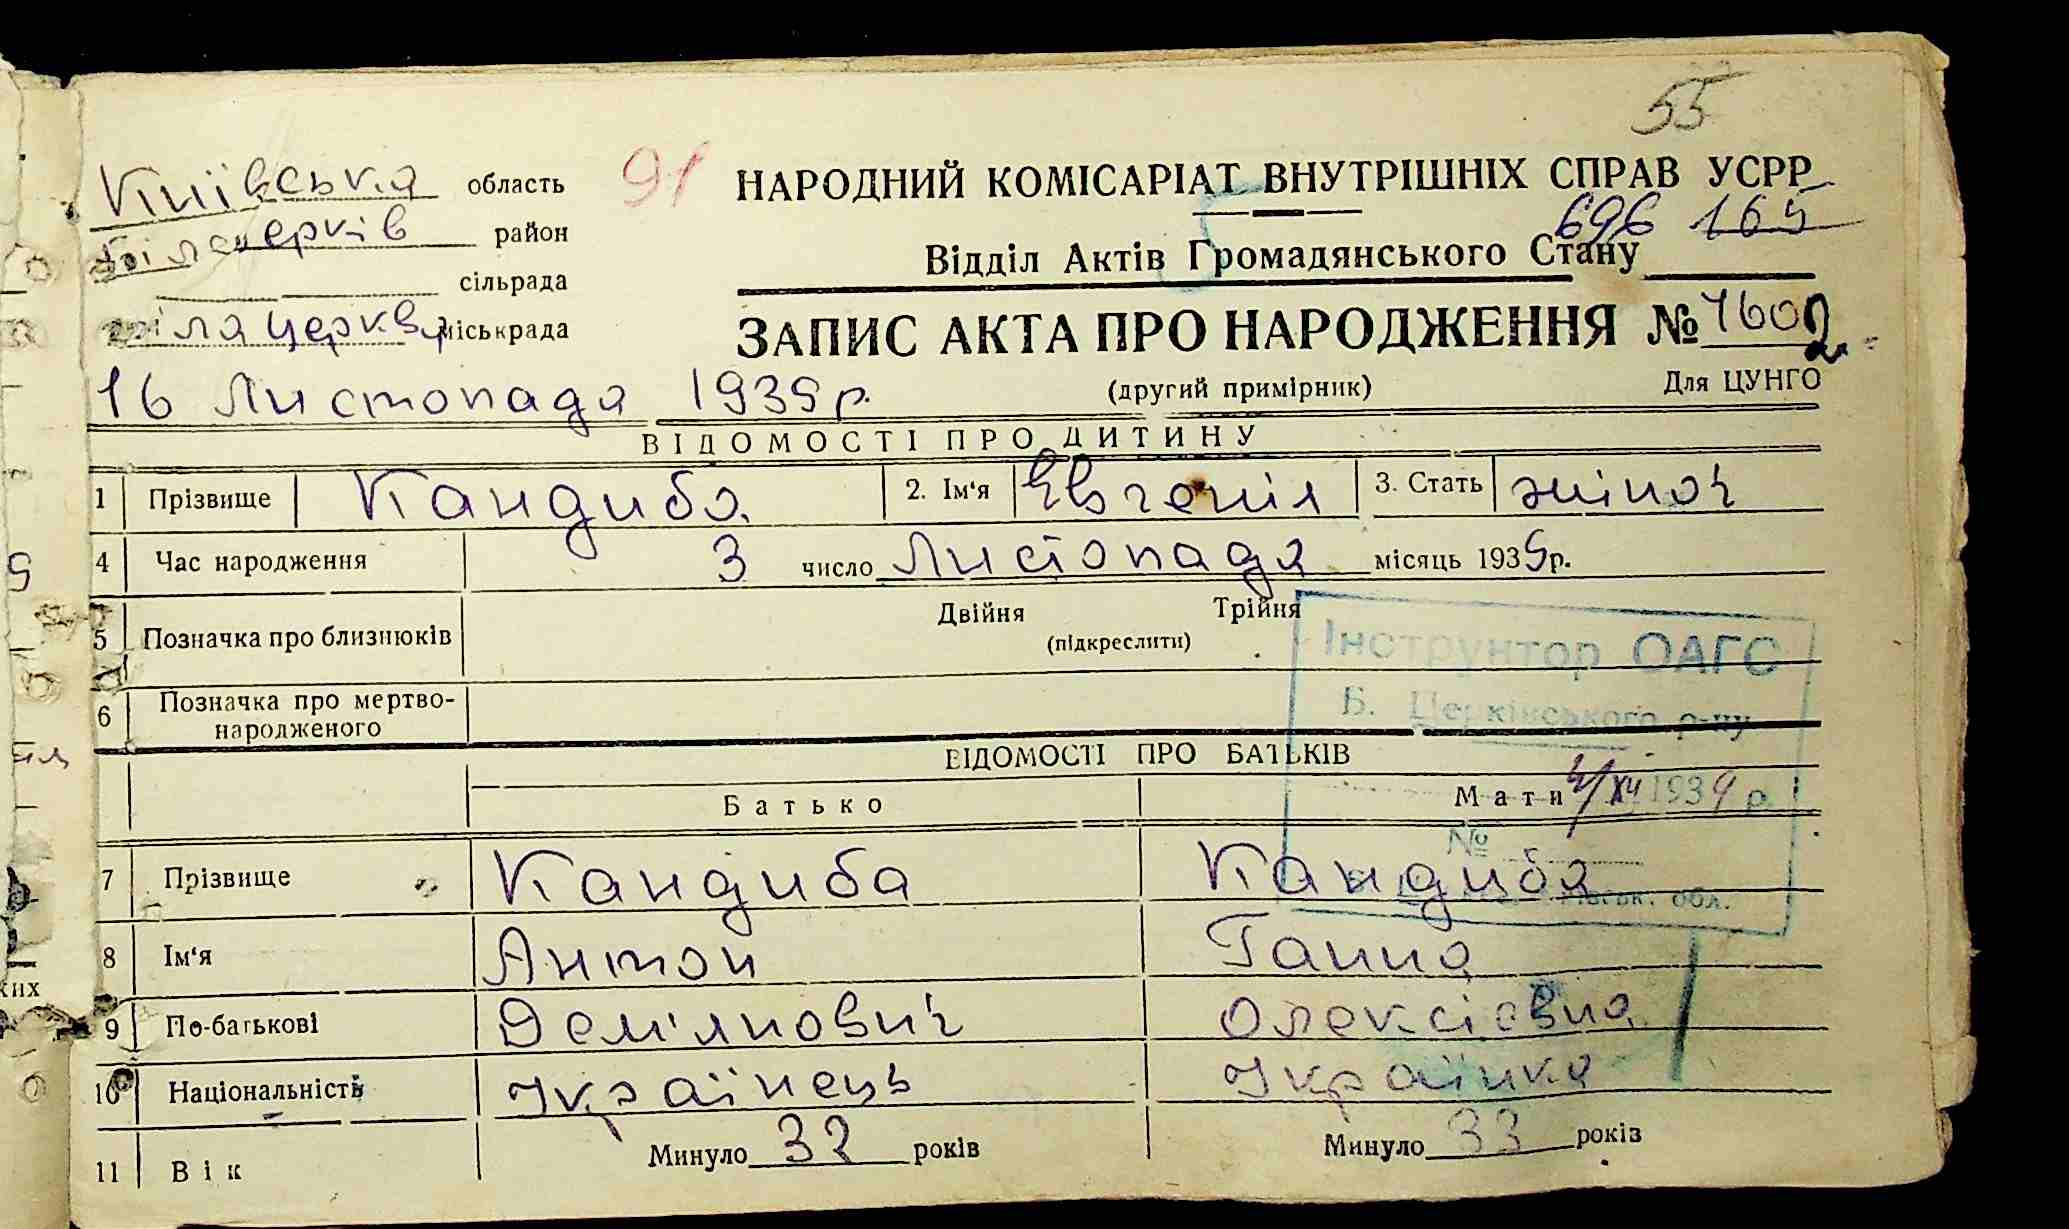 55
Київська область
91
НАРОДНИЙ КОМІСАРІАТ ВНУТРІШНІХ СПРАВ УСРР
Білоцерків район
696 165
Відділ Актів Громадянського Стану
сільрада
Біла церква міськрада
ЗАПИС АКТА ПРО НАРОДЖЕННЯ № 1602
16 Листопада 1935 р.
(другий примірник)
Для ЦУНГО
ВІДОМОСТІ ПРО ДИТИНУ
1 Прізвище Кандиба 2. Ім‘я Евгенія 3. Стать жіноч
4 Час народження 3 число Листопада місяць 1935 р.
5 Позначка про близнюків Двійня Трійня
(підкреслити)
Інструктор ОАГС
6 Позначка про мертво-
народженого
Б. Церківського р-ну
ВІДОМОСТІ ПРО БАТЬКІВ
Батько Мати
XII 193 р.
№
7 Прізвище Кандиба Кандиба
обл.
8 Ім‘я Антон Ганна
9 По-батькові Дем'янович Олексієвна
10 Національність Українець Українка
11 Вік Минуло 32 років Минуло 33 років
ких